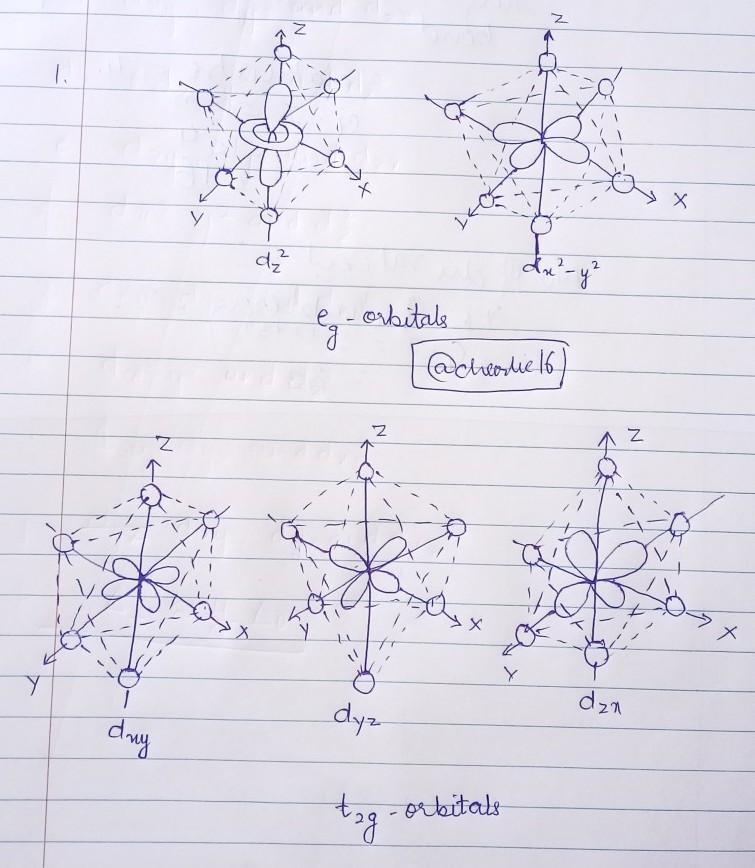 1.
Z
X
Y
dz²
Z
X
Y
dx²-y²
eg - orbitals
@cheorlie16
Z
X
Y
dxy
Z
X
Y
dyz
Z
X
Y
dzx
t2g - orbitals